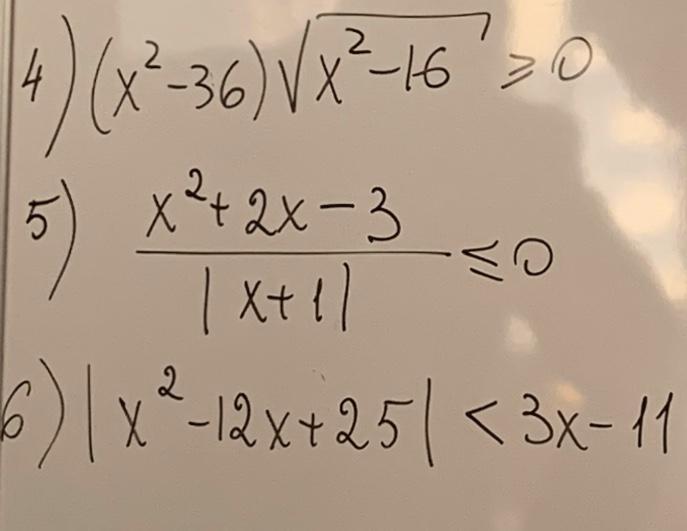 4) (x²-36)√(x²-16) ≥ 0
5) (x²+2x-3)/|x+1| ≤ 0
6) |x²-12x+25| < 3x-11